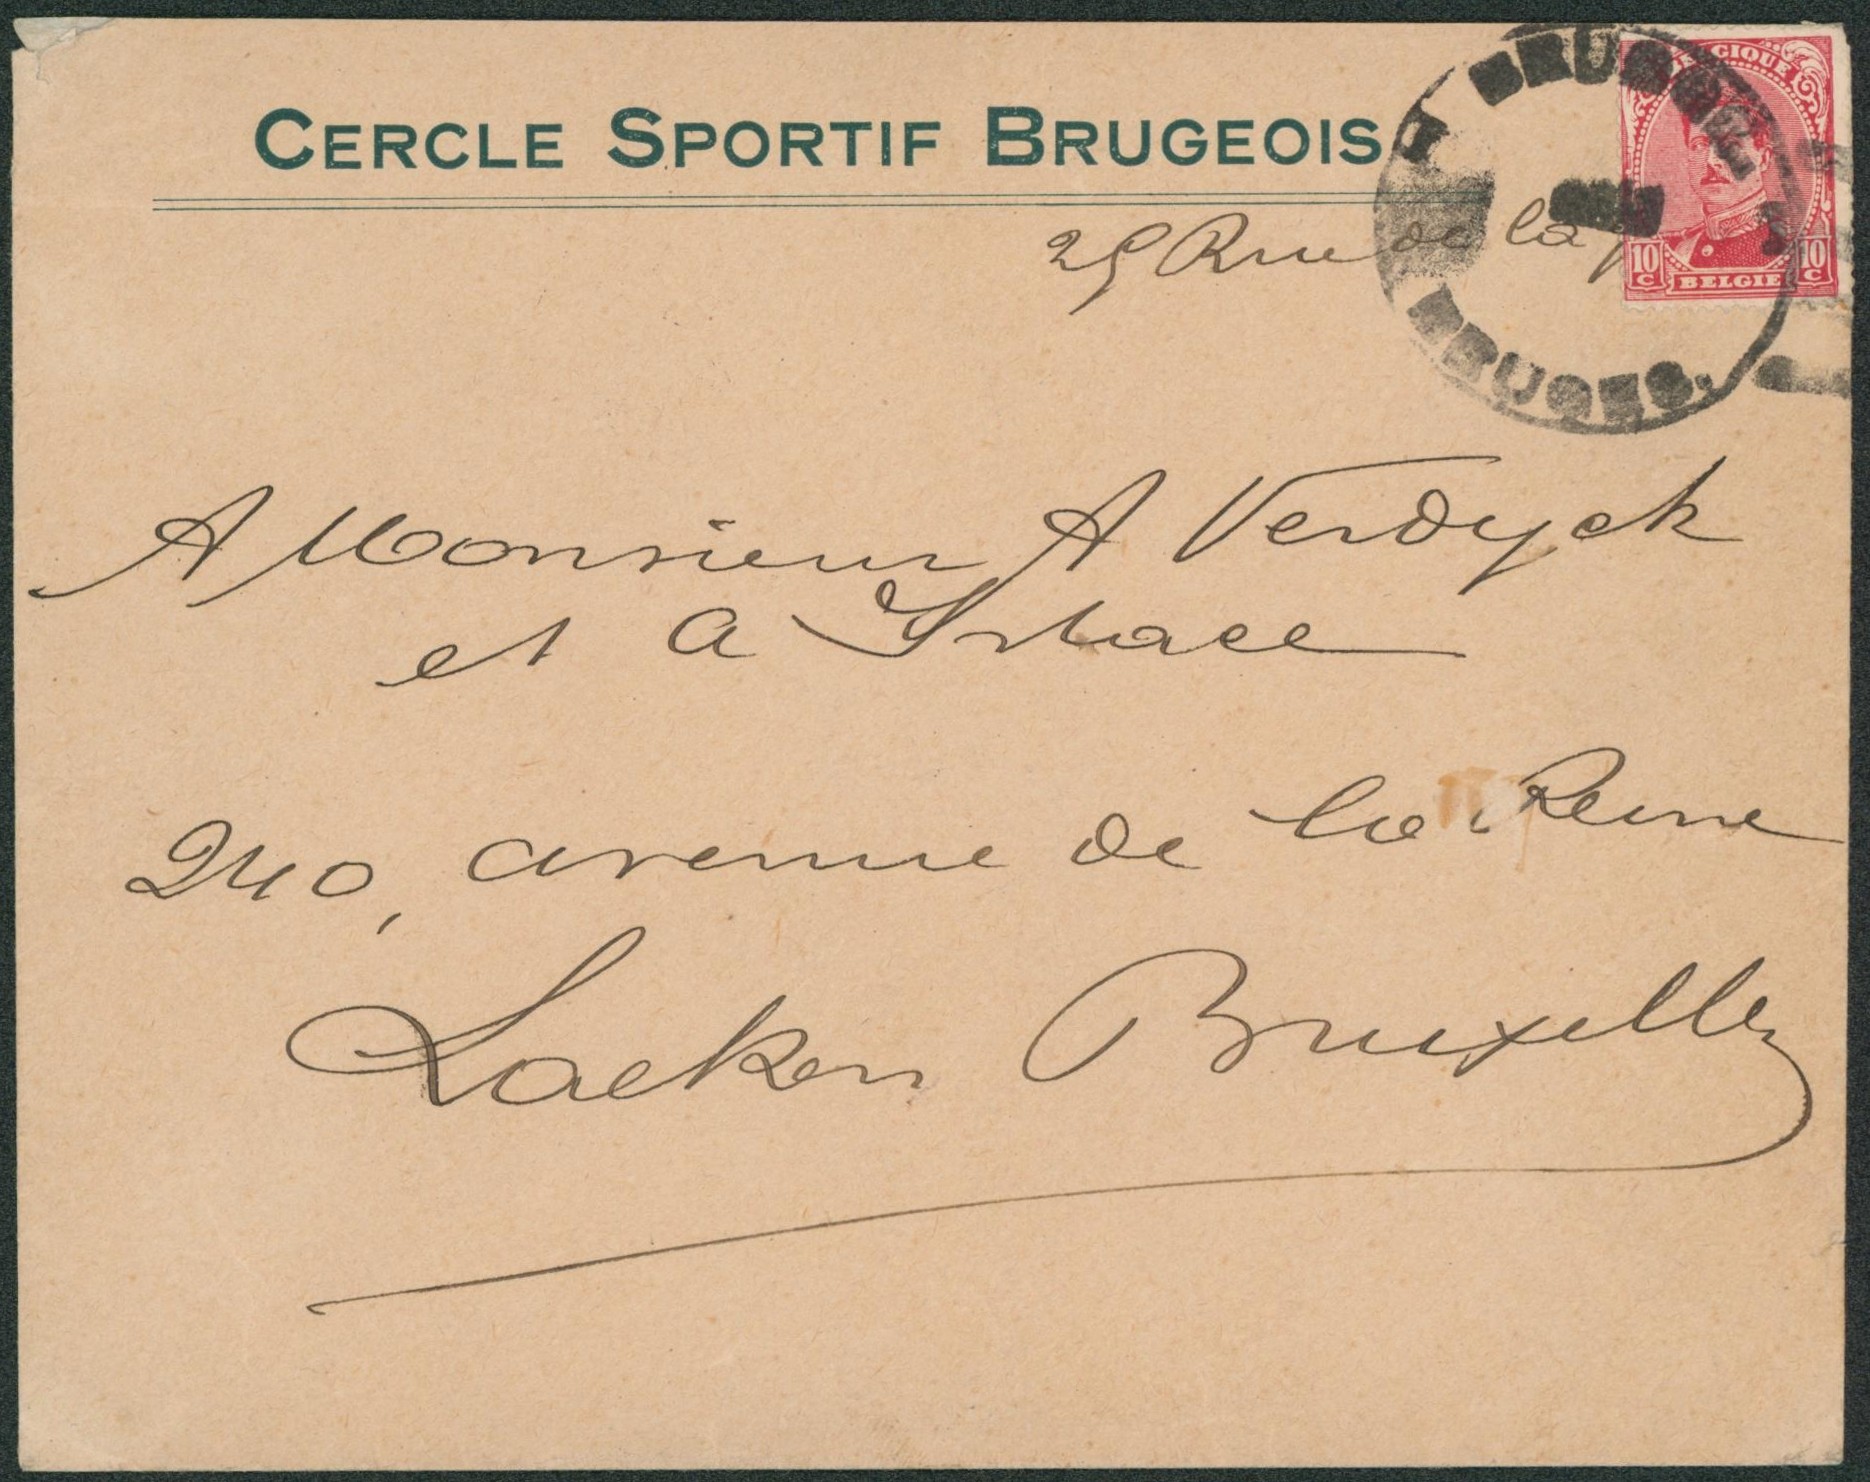 CERCLE SPORTIF BRUGEOIS
BRUGGE
BELGIQUE
25 Rue de la
10 C BELGIE 10 C
BRUGES.
A Monsieur A Verdyck
et A Istace
240, avenue de la Reine
Laeken Bruxelles